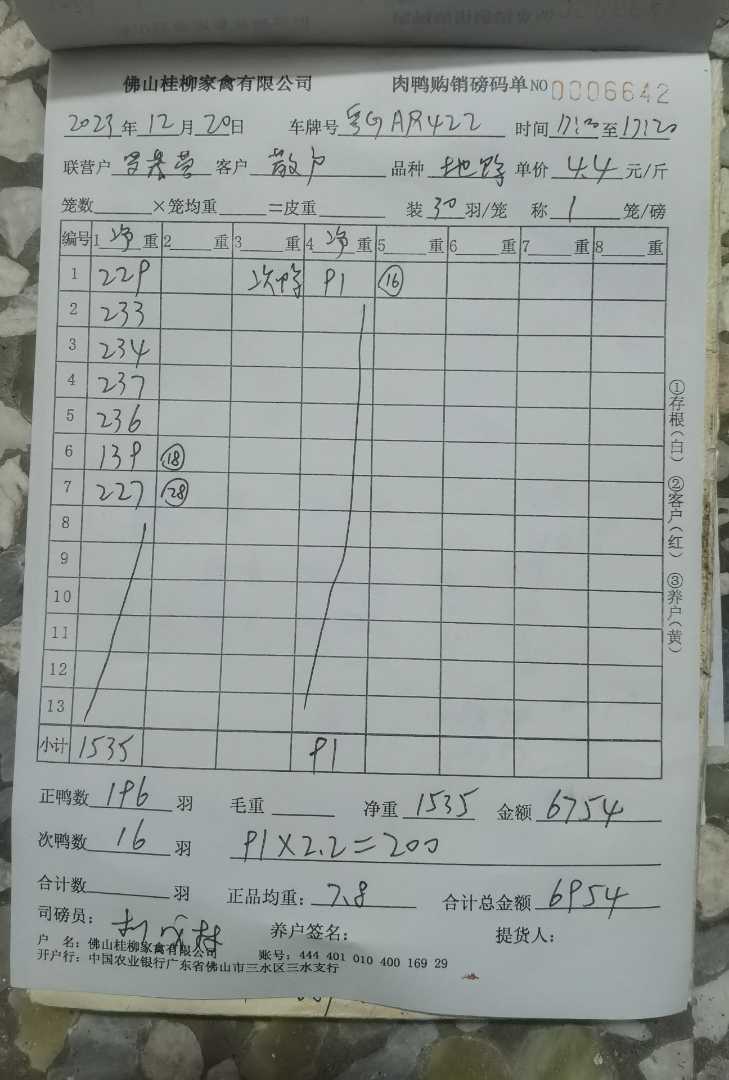 佛山桂柳家禽有限公司 肉鸭购销磅码单 NO 0006642
2023年12月20日 车牌号 粤GAR422 时间 17:00至17:20
联营户 客户 散户 品种 单价 4.4 元/斤
笼数 ×笼均重 =皮重 装 30 羽/笼 称 1 笼/磅
编号 1 净 重 2 重 3 重 4 净 重 5 重 6 重 7 重 8 重
1 229 次鸭 91 16
2 233
3 234
4 237
5 236
6 139 18
7 227 28
8
9
10
11
12
13
小计 1535 91
正鸭数 196 羽 毛重 净重 1535 金额 6754
次鸭数 16 羽 91×2.2=200
合计数 羽 正品均重: 7.8 合计总金额 6954
司磅员: 养户签名: 提货人:
户 名: 佛山桂柳家禽有限公司 账号: 444 401 010 400 169 29
开户行: 中国农业银行广东省佛山市三水区三水支行
①存根(白) ②客户(红) ③养户(黄)